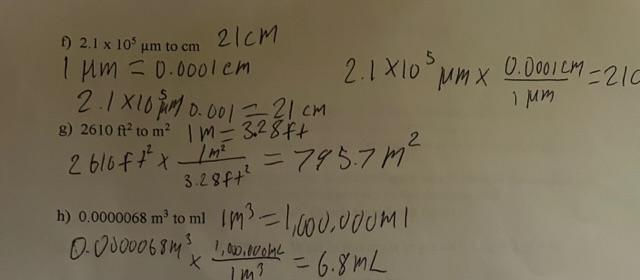 f) 2.1 x 10⁵ µm to cm 21cm
1 µm = 0.0001cm
2.1 X10⁵ µm x 0.0001cm / 1 µm = 210
2.1 X10⁵ µm 0.001 = 21 cm
g) 2610 ft² to m² 1m = 3.28ft
2610ft² x 1m² / 3.28ft² = 795.7m²
h) 0.0000068 m³ to ml 1m³ = 1,000,000ml
0.0000068m³ x 1,000,000mL / 1m³ = 6.8mL